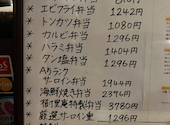 * エビフライ弁当 1242円
* トンカツ弁当 1080円
* カルビ弁当 1296円
* ハラミ弁当 1404円
* タン塩弁当 1296円
* Aランク
サーロイン弁当 1944円
* 海鮮焼き弁当 2376円
* 特製弁当 3780円
* 厳選サーロイン重
1296円